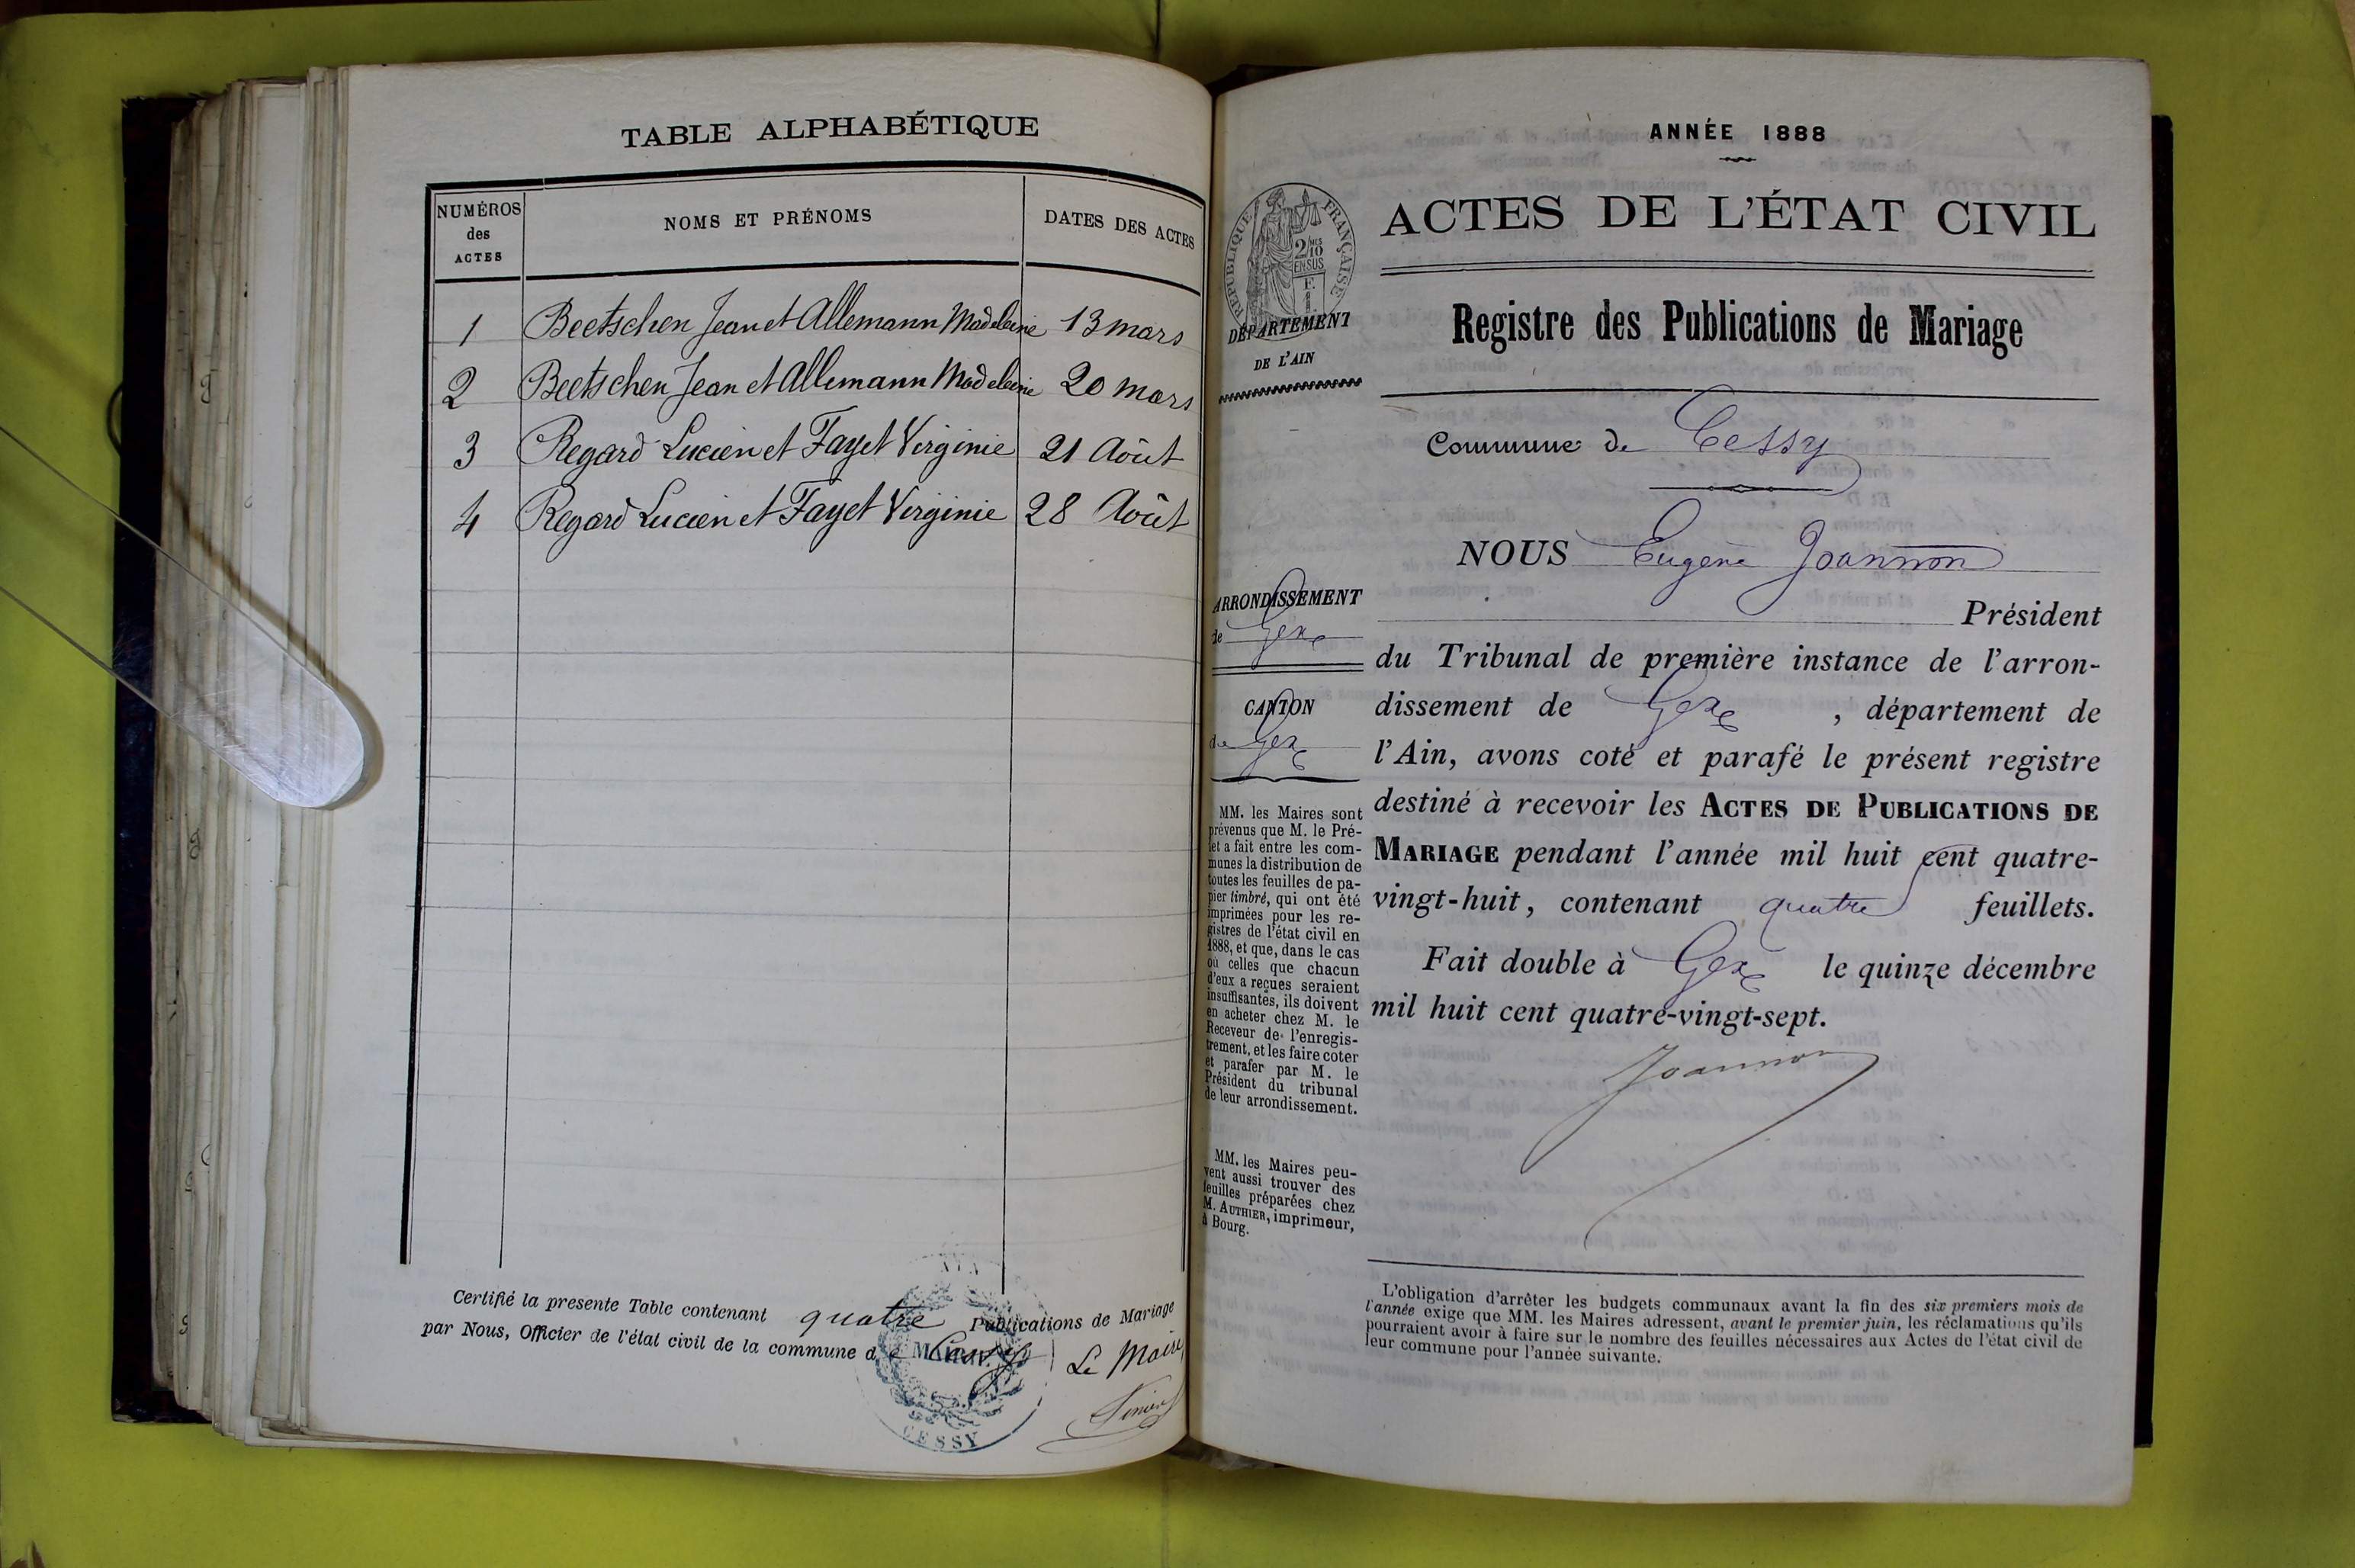 TABLE ALPHABÉTIQUE
NUMÉROS des ACTES
NOMS ET PRÉNOMS
DATES DES ACTES
1 Beetschen Jean et Allemann Madeleine 13 mars
2 Beetschen Jean et Allemann Madeleine 20 mars
3 Regard Lucien et Fayet Virginie 21 Août
4 Regard Lucien et Fayet Virginie 28 Août
Certifié la presente Table contenant quatre Publications de Mariage
par Nous, Officier de l'état civil de la commune de Cessy
Le Maire
CESSY
ANNÉE 1888
ACTES DE L'ÉTAT CIVIL
Registre des Publications de Mariage
RÉPUBLIQUE FRANÇAISE
2/10
EN SUS
DÉPARTEMENT
DE L'AIN
Commune de Cessy
NOUS Eugène Joannon
Président
du Tribunal de première instance de l'arron-
dissement de Gex, département de
l'Ain, avons coté et parafé le présent registre
destiné à recevoir les ACTES DE PUBLICATIONS DE
MARIAGE pendant l'année mil huit cent quatre-
vingt-huit, contenant quatre feuillets.
Fait double à Gex le quinze décembre
mil huit cent quatre-vingt-sept.
Joannon
ARRONDISSEMENT
de Gex
CANTON
de Gex
MM. les Maires sont
prévenus que M. le Pré-
fet a fait entre les com-
munes la distribution de
toutes les feuilles de pa-
pier timbré, qui ont été
imprimées pour les re-
gistres de l'état civil en
1888, et que, dans le cas
où celles que chacun
d'eux a reçues seraient
insuffisantes, ils doivent
en acheter chez M. le
Receveur de l'enregis-
trement, et les faire coter
et parafer par M. le
Président du tribunal
de leur arrondissement.
MM. les Maires peu-
vent aussi trouver des
feuilles préparées chez
M. AUTHIER, imprimeur,
à Bourg.
L'obligation d'arrêter les budgets communaux avant la fin des six premiers mois de
l'année exige que MM. les Maires adressent, avant le premier juin, les réclamations qu'ils
pourraient avoir à faire sur le nombre des feuilles nécessaires aux Actes de l'état civil de
leur commune pour l'année suivante.